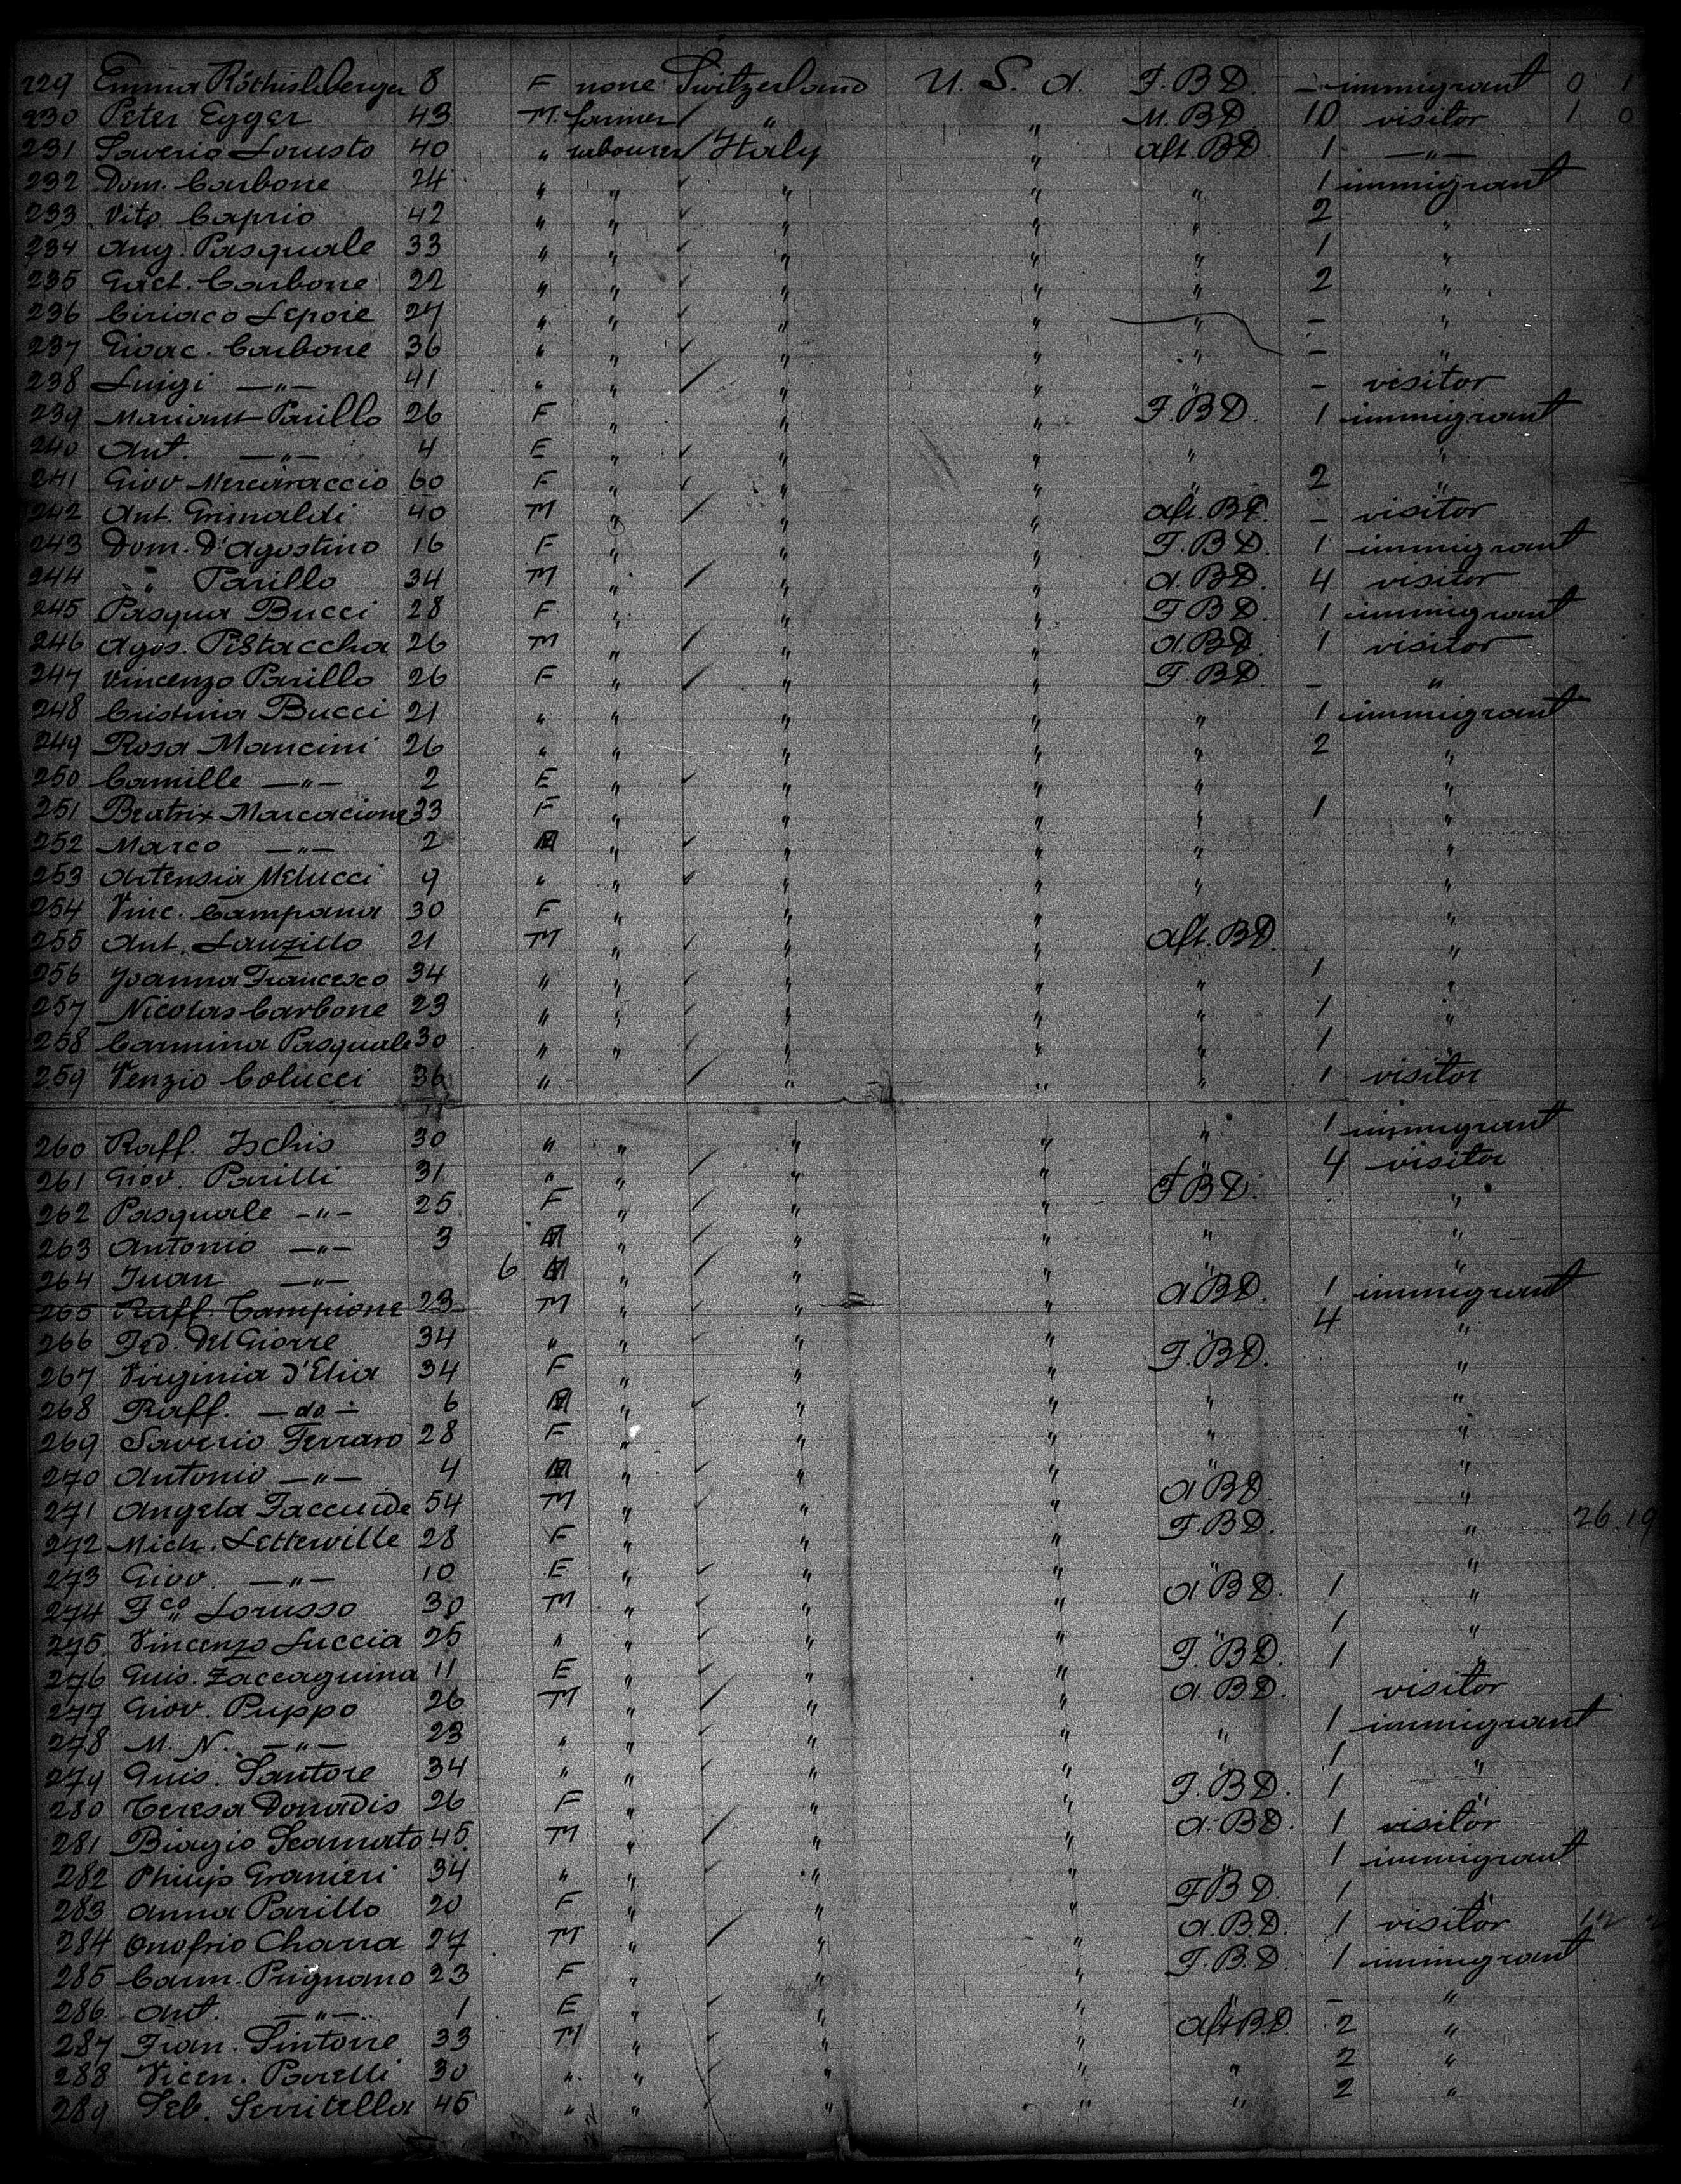 229 Emma Röthisberger 8 F none Switzerland U. S. A. F. BD. — immigrant 0 1
230 Peter Egger 43 M. farmer " " M. BD 10 visitor 1 0
231 Saverio Lorusto 40 " labourer Italy " aft. BD 1 —"—
232 Dom. Carbone 24 " " " " " 1 immigrant
233 Vito Caprio 42 " " " " " 2 "
234 Ang. Pasquale 33 " " " " " 1 "
235 Gact. Carbone 22 " " " " " 2 "
236 Ciriaco Lepore 27 " " " " " — "
237 Gioac. Carbone 36 " " " " " — "
238 Luigi —"— 41 " " " " " — visitor
239 Mariant Parillo 26 F " " " F. BD. 1 immigrant
240 Ant. —"— 4 E " " " " "
241 Giov 60 F " " " " 2 "
242 Ant. Grimaldi 40 M " " " aft. BD. — visitor
243 Dom. D'Agostino 16 F " " " F. BD. 1 immigrant
244 " Parillo 34 M " " " A. BD. 4 visitor
245 Pasqua Bucci 28 F " " " F BD. 1 immigrant
246 Agos. Pistaccha 26 M " " " A. BD. 1 visitor
247 Vincenzo Parillo 26 F " " " F. BD. — "
248 Cristina Bucci 21 " " " " " 1 immigrant
249 Rosa Mancini 26 " " " " " 2 "
250 Camille —"— 2 E " " " " "
251 Beatrix Marcacione 33 F " " " " 1 "
252 Marco —"— 2 " " " " "
253 Artensia Melucci 9 " " " " " "
254 Vinc. Campana 30 F " " " " "
255 Ant. Lanzillo 21 M " " " aft. BD. "
256 Joanna Francesco 34 " " " " " 1 "
257 Nicolas Carbone 23 " " " " " 1 "
258 Carmina Pasquale 30 " " " " " 1 "
259 Venzio Colucci 36 " " " " 1 visitor
260 Raff. Ischis 30 " " " " " 1 immigrant
261 Giov. Parilli 31 " " " " " 4 visitor
262 Pasquale —"— 25 F " " " F BD. "
263 Antonio —"— 3 " " " " "
264 Juan —"— 6 " " " " "
265 Raff. Campione 23 M " " " A. BD. 1 immigrant
266 Fed. Del Giorre 34 " " " " " 4 "
267 Virginia d'Elia 34 F " " " F. BD. "
268 Raff. —do— 6 " " " " "
269 Saverio Ferraro 28 F " " " " "
270 Antonio —"— 4 " " " " "
271 Angela Faccuide 54 M " " " A BD. "
272 Mich. Letterville 28 F " " " F. BD. " 26.19
273 Giov. —"— 10 E " " " " "
274 Fco. Lorusso 30 M " " " A BD. 1 "
275 Vincenzo Luccia 25 " " " " " 1 "
276 Guis. Zaccaguina 11 E " " " F. BD. 1 "
277 Giov. Puppo 26 M " " " A. BD. visitor
278 M. N. —"— 23 " " " " " 1 immigrant
279 Guis. Santore 34 " " " " " 1 "
280 Teresa Donadis 26 F " " " F. BD. 1 "
281 Biagio Scamato 45 M " " " A. BD. 1 visitor
282 Philip Granieri 34 " " " " " 1 immigrant
283 Anna Parillo 20 F " " " F BD. 1 "
284 Onofrio Charra 27 M " " " A. B.D. 1 visitor
285 Carm. Prignano 23 F " " " F. B. D. 1 immigrant
286 Ant. —"— 1 E " " " " — "
287 Fran. Sintorre 33 M " " " aft B.D. 2 "
288 Vicen. Parelli 30 " " " " " 2 "
289 Seb. Serritella 45 " " " " " 2 "